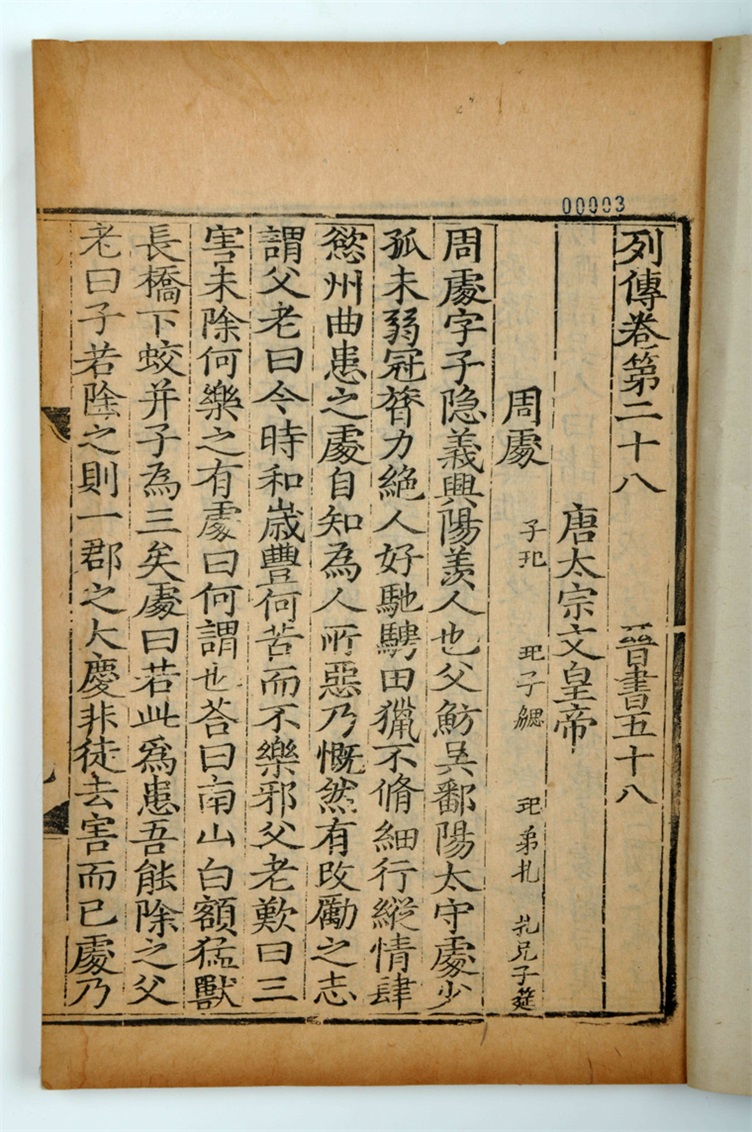 00003
列傳卷第二十八 晉書五十八
唐太宗文皇帝
周處 子玘 玘子勰 玘弟札 札兄子莚
周處字子隐義興陽羨人也父魴吳鄱陽太守處少
孤未弱冠膂力絶人好馳騁田獵不脩細行縱情肆
慾州曲患之處自知為人所惡乃慨然有改勵之志
謂父老曰今時和歲豐何苦而不樂邪父老歎曰三
害未除何樂之有處曰何謂也荅曰南山白額猛獸
長橋下蛟并子為三矣處曰若此爲患吾能除之父
老曰子若除之則一郡之大慶非徒去害而已處乃